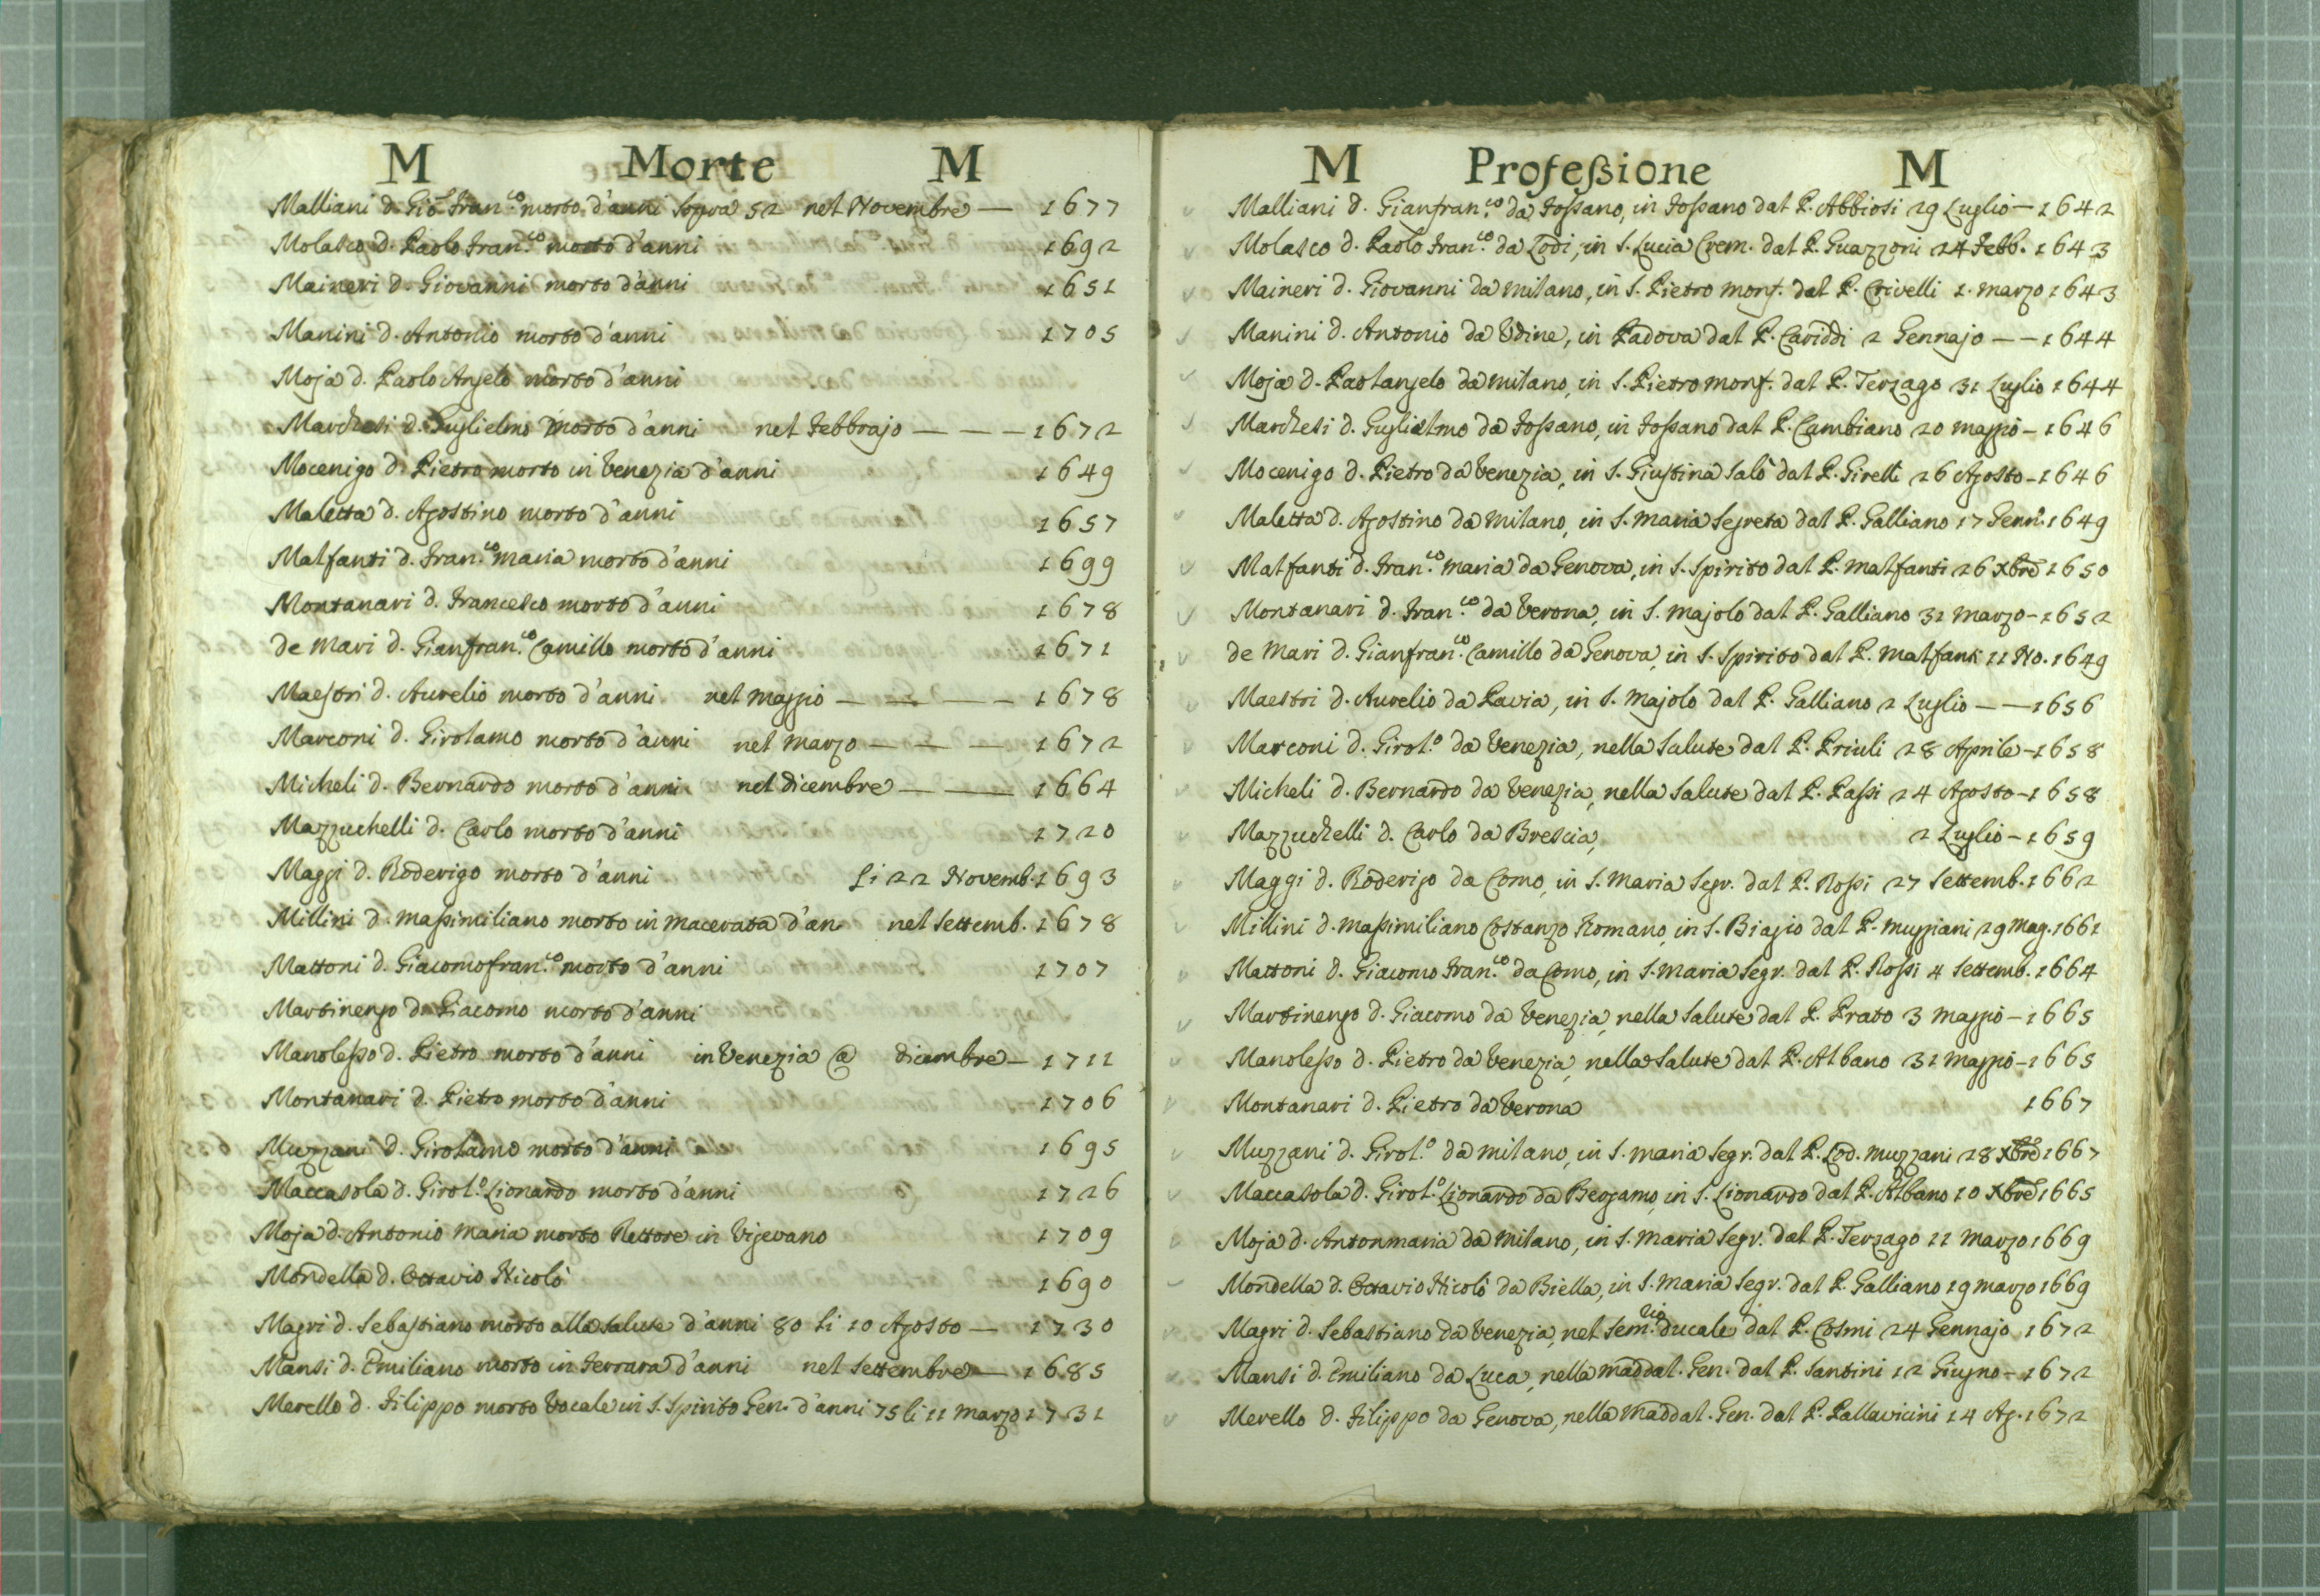 M Morte M
Malliani d. Gio: Fran.co morto d'anni sopra 52 nel Novembre — 1677
Molasco d. Paolo Fran.co morto d'anni 1692
Maineri d. Giovanni morto d'anni 1651
Manini d. Antonio morto d'anni 1705
Moja d. Paolo Angelo morto d'anni
Marchesi d. Guglielmo morto d'anni nel Febbrajo — — — 1672
Mocenigo d. Pietro morto in Venezia d'anni 1649
Maletta d. Agostino morto d'anni 1657
Malfanti d. Fran.co Maria morto d'anni 1699
Montanari d. Francesco morto d'anni 1678
de Mari d. Gianfran.co Camillo morto d'anni 1671
Maestri d. Aurelio morto d'anni nel Maggio — — — — 1678
Marconi d. Girolamo morto d'anni nel Marzo — — — 1672
Micheli d. Bernardo morto d'anni nel Dicembre — — 1664
Mazzuchelli d. Carlo morto d'anni 1720
Maggi d. Roderigo morto d'anni li 22 Novemb. 1693
Millini d. Maßimiliano morto in Macerata d'an. nel Settemb. 1678
Mattoni d. Giacomofran.co morto d'anni 1707
Martinengo d. Giacomo morto d'anni
Manoleßo d. Pietro morto d'anni in Venezia @ Dicembre — 1711
Montanari d. Pietro morto d'anni 1706
Muzzani d. Girolamo morto d'anni 1695
Maccasola d. Girol.o Lionardo morto d'anni 1726
Moja d. Antonio Maria morto Rettore in Vigevano 1709
Mondella d. Ottavio Nicolò 1690
Magri d. Sebastiano morto alla Salute d'anni 80 li 10 Agosto — 1730
Mansi d. Emiliano morto in Ferrara d'anni nel Settembre — 1685
Merello d. Filippo morto Vocale in S. Spirito Gen. d'anni 75 li 11 Marzo 1731
M Profeßione M
Malliani d. Gianfran.co da Foßano, in Foßano dal P. Abbiosi 29 Luglio — 1642
Molasco d. Paolo Fran.co da Lodi, in S. Lucia Crem. dal P. Guazzoni 24 Febb. 1643
Maineri d. Giovanni da Milano, in S. Pietro Monf. dal P. Crivelli 1. Marzo 1643
Manini d. Antonio da Udine, in Padova dal P. Cariddi 2 Gennajo — — 1644
Moja d. Paolangelo da Milano, in S. Pietro Monf. dal P. Terzago 31 Luglio 1644
Marchesi d. Guglielmo da Foßano, in Foßano dal P. Cambiano 20 Maggio — 1646
Mocenigo d. Pietro da Venezia, in S. Giustina Salò dal P. Girelli 26 Agosto — 1646
Maletta d. Agostino da Milano, in S. Maria Segreta dal P. Galliano 17 Genn. 1649
Malfanti d. Fran.co Maria da Genova, in S. Spirito dal P. Malfanti 26 Xbre 1650
Montanari d. Fran.co da Verona, in S. Majolo dal P. Galliano 31 Marzo — 1652
de Mari d. Gianfran.co Camillo da Genova, in S. Spirito dal P. Malfanti 11 No. 1649
Maestri d. Aurelio da Pavia, in S. Majolo dal P. Galliano 2 Luglio — — 1656
Marconi d. Girol.o da Venezia, nella Salute dal P. Priuli 28 Aprile — 1658
Micheli d. Bernardo da Venezia, nella Salute dal P. Paßi 24 Agosto — 1658
Mazzuchelli d. Carlo da Brescia, 2 Luglio — 1659
Maggi d. Roderigo da Como, in S. Maria Segr. dal P. Roßi 27 Settemb. 1662
Millini d. Maßimiliano Costanzo Romano, in S. Biagio dal P. Muzziani 29 Mag. 1661
Mattoni d. Giacomo Fran.co da Como, in S. Maria Segr. dal P. Roßi 4 Settemb. 1664
Martinengo d. Giacomo da Venezia, nella Salute dal P. Prato 3 Maggio — 1665
Manoleßo d. Pietro da Venezia, nella Salute dal P. Albano 31 Maggio — 1665
Montanari d. Pietro da Verona 1667
Muzzani d. Girol.o da Milano, in S. Maria Segr. dal P. Lod. Muzzani 28 Xbre 1667
Maccasola d. Girol.o Lionardo da Bergamo, in S. Lionardo dal P. Albano 10 Xbre 1665
Moja d. Antonmaria da Milano, in S. Maria Segr. dal P. Terzago 11 Marzo 1669
Mondella d. Ottavio Nicolò da Biella, in S. Maria Segr. dal P. Galliano 19 Marzo 1669
Magri d. Sebastiano da Venezia, nel Sem.rio Ducale dal P. Cosmi 24 Gennajo 1672
Mansi d. Emiliano da Luca, nella Maddal. Gen. dal P. Santini 12 Giugno — 1672
Merello d. Filippo da Genova, nella Maddal. Gen. dal P. Pallavicini 14 Ag. 1672